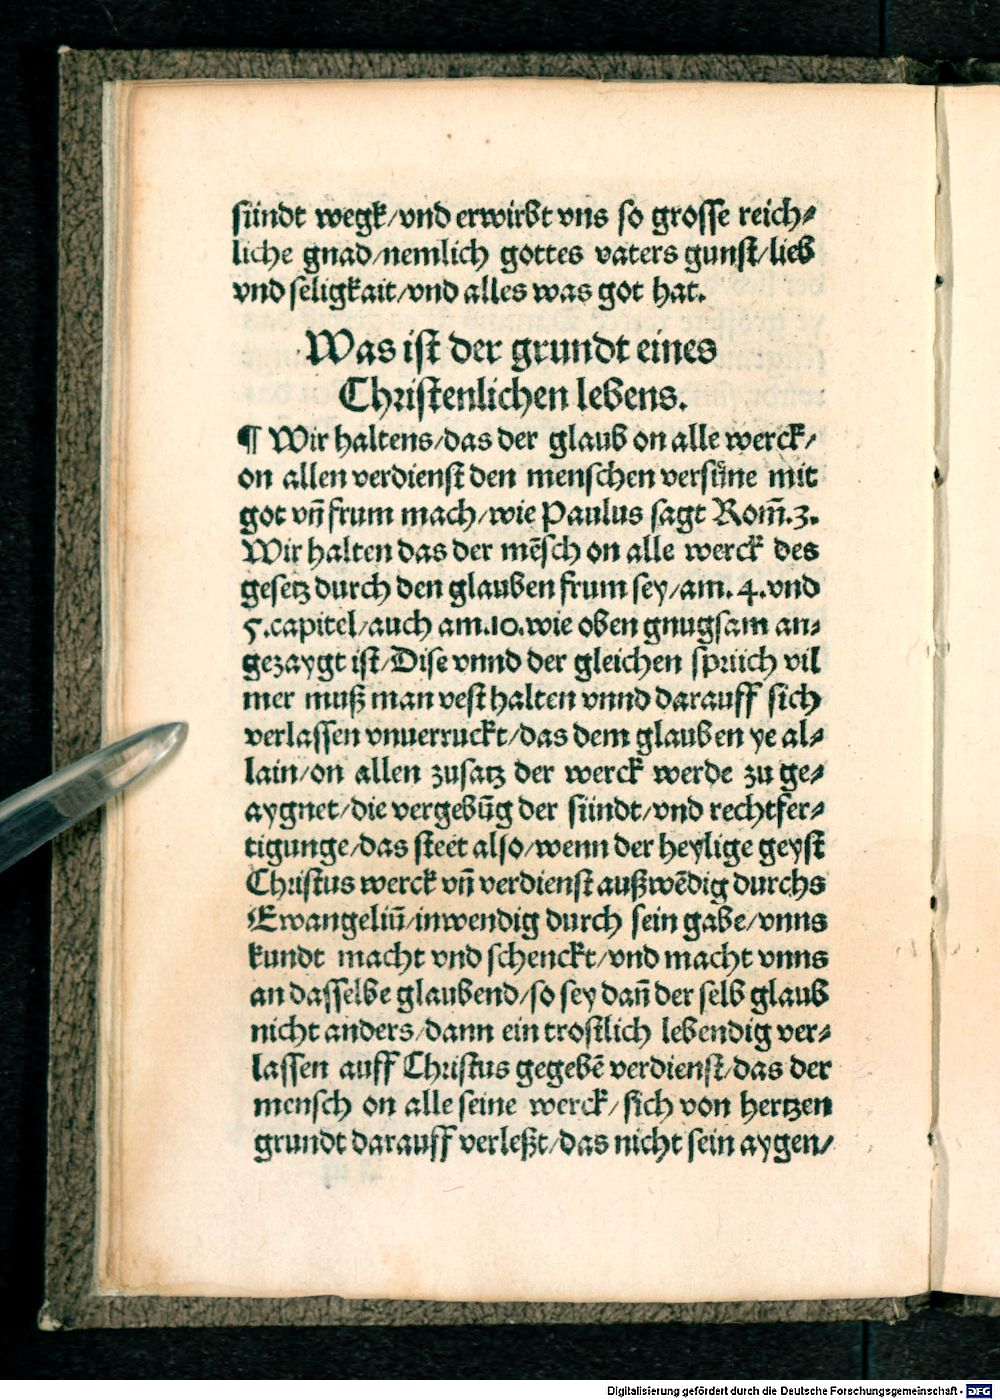 sündt wegk/vnd erwirbt vns so grosse reich⸗
liche gnad/nemlich gottes vaters gunst/lieb
vnd seligkait/vnd alles was got hat.
Was ist der grundt eines
Christenlichen lebens.
¶ Wir haltens/das der glaub on alle werck/
on allen verdienst den menschen versüne mit
got vñ frum mach/wie Paulus sagt Rom̃.3.
Wir halten das der mēsch on alle werck des
gesetz durch den glauben frum sey/am. 4. vnd
5.capitel/auch am.10.wie oben gnugsam an⸗
gezaygt ist/Dise vnnd der gleichen sprüch vil
mer muß man vest halten vnnd darauff sich
verlassen vnuerruckt/das dem glauben ye al⸗
lain/on allen zusatz der werck werde zu ge⸗
aygnet/die vergebūg der sündt/vnd rechtfer⸗
tigunge/das steet also/wenn der heylige geyst
Christus werck vñ verdienst außwēdig durchs
Ewangeliū/inwendig durch sein gabe/vnns
kundt macht vnd schenckt/vnd macht vnns
an dasselbe glaubend/so sey dañ der selb glaub
nicht anders/dann ein trostlich lebendig ver⸗
lassen auff Christus gegebē verdienst/das der
mensch on alle seine werck/sich von hertzen
grundt darauff verleßt/das nicht sein aygen/
Digitalisierung gefördert durch die Deutsche Forschungsgemeinschaft - DFG